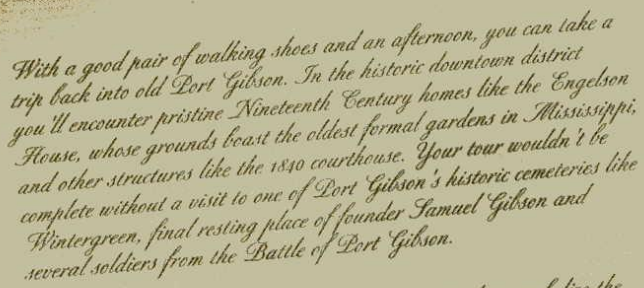 With a good pair of walking shoes and an afternoon, you can take a
trip back into old Port Gibson. In the historic downtown district
you'll encounter pristine Nineteenth Century homes like the Engelson
House, whose grounds boast the oldest formal gardens in Mississippi,
and other structures like the 1840 courthouse. Your tour wouldn't be
complete without a visit to one of Port Gibson's historic cemeteries like
Wintergreen, final resting place of founder Samuel Gibson and
several soldiers from the Battle of Port Gibson.
the